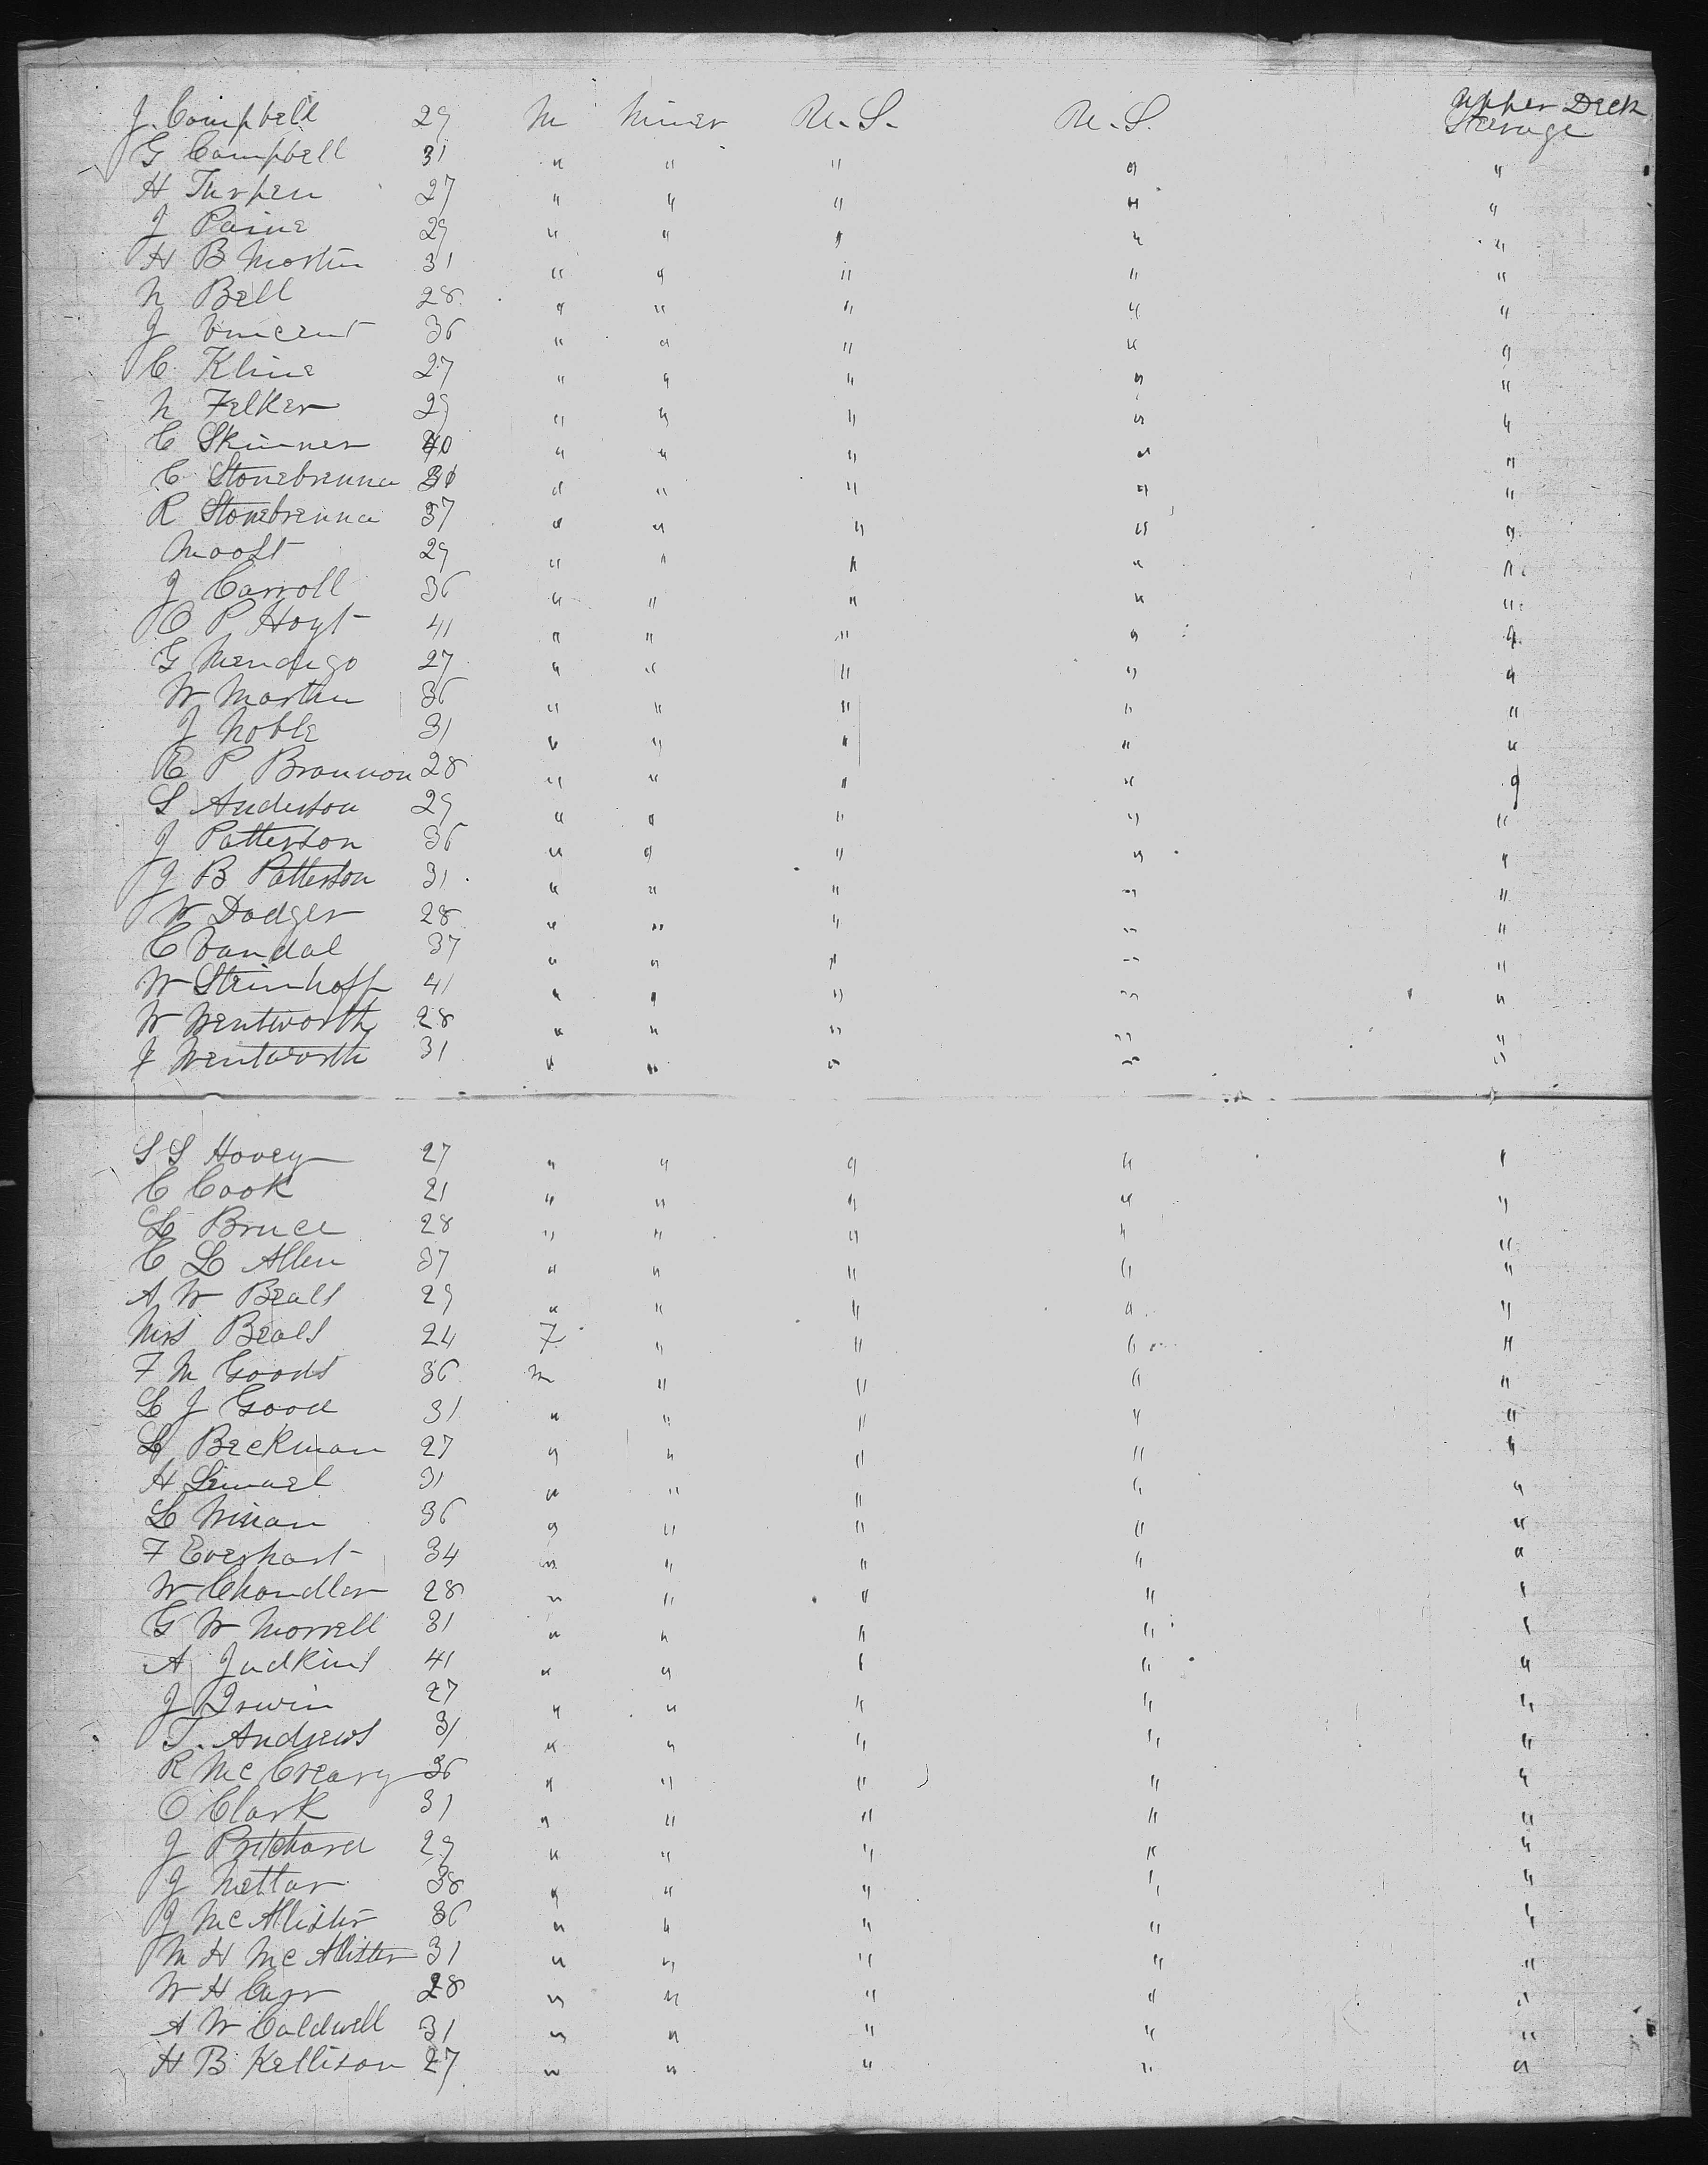 J. Campbell 29 M Miner U.S. U.S. Upper Deck Steerage
G Campbell 31 " " " " "
H Turpen 27 " " " " "
J Paine 29 " " " " "
H B Martin 31 " " " " "
N Bell 28 " " " " "
J Vincent 36 " " " " "
C Kline 27 " " " " "
N Felker 29 " " " " "
C Skinner 40 " " " " "
C Stonebrenna 31 " " " " "
R Stonebrenna 37 " " " " "
Moost 29 " " " " "
J Carroll 36 " " " " "
C P Hoyt 41 " " " " "
G Mendigo 27 " " " " "
W Martin 36 " " " " "
J Noble 31 " " " " "
E P Brannon 28 " " " " "
S Anderson 29 " " " " "
J Patterson 36 " " " " "
J B Patterson 31 " " " " "
W Dodger 28 " " " " "
C Vandal 37 " " " " "
W Steinhoff 41 " " " " "
W Wentworth 28 " " " " "
J Wentworth 31 " " " " "
S S Hovey 27 " " " " "
C Cook 21 " " " " "
L Bruce 28 " " " " "
C L Allen 37 " " " " "
A W Beals 29 " " " " "
Mrs Beals 24 F " " " "
F M Goods 36 M " " " "
L J Good 31 " " " " "
L Beckman 27 " " " " "
H Lemuel 31 " " " " "
L Winan 36 " " " " "
F Everhart 34 " " " " "
W Chandler 28 " " " " "
G W Morrell 31 " " " " "
A Judkins 41 " " " " "
J Irwin 27 " " " " "
T. Andrews 31 " " " " "
R McCreary 36 " " " " "
O Clark 31 " " " " "
J Pritchard 29 " " " " "
J Mettar 38 " " " " "
J McAllister 36 " " " " "
M H McAllister 31 " " " " "
W H Carr 28 " " " " "
A W Caldwell 31 " " " " "
H B Kellison 27 " " " " "